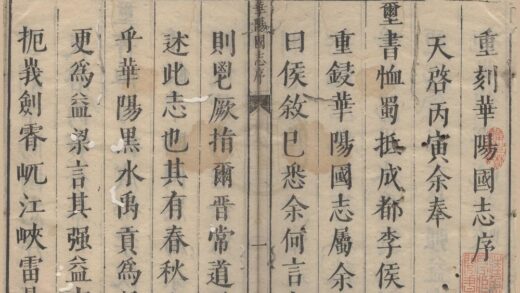 重刻華陽國志序
天啓丙寅余奉
璽書恤蜀抵成都李侯
重鋟華陽國志屬余
曰侯敘已悉余何言
華陽國志序
一
則鬯厥指爾晋常道
述此志也其有春秋
乎華陽黒水禹貢爲
更爲益梁言其强益
扼義劍脊屼江峽雷